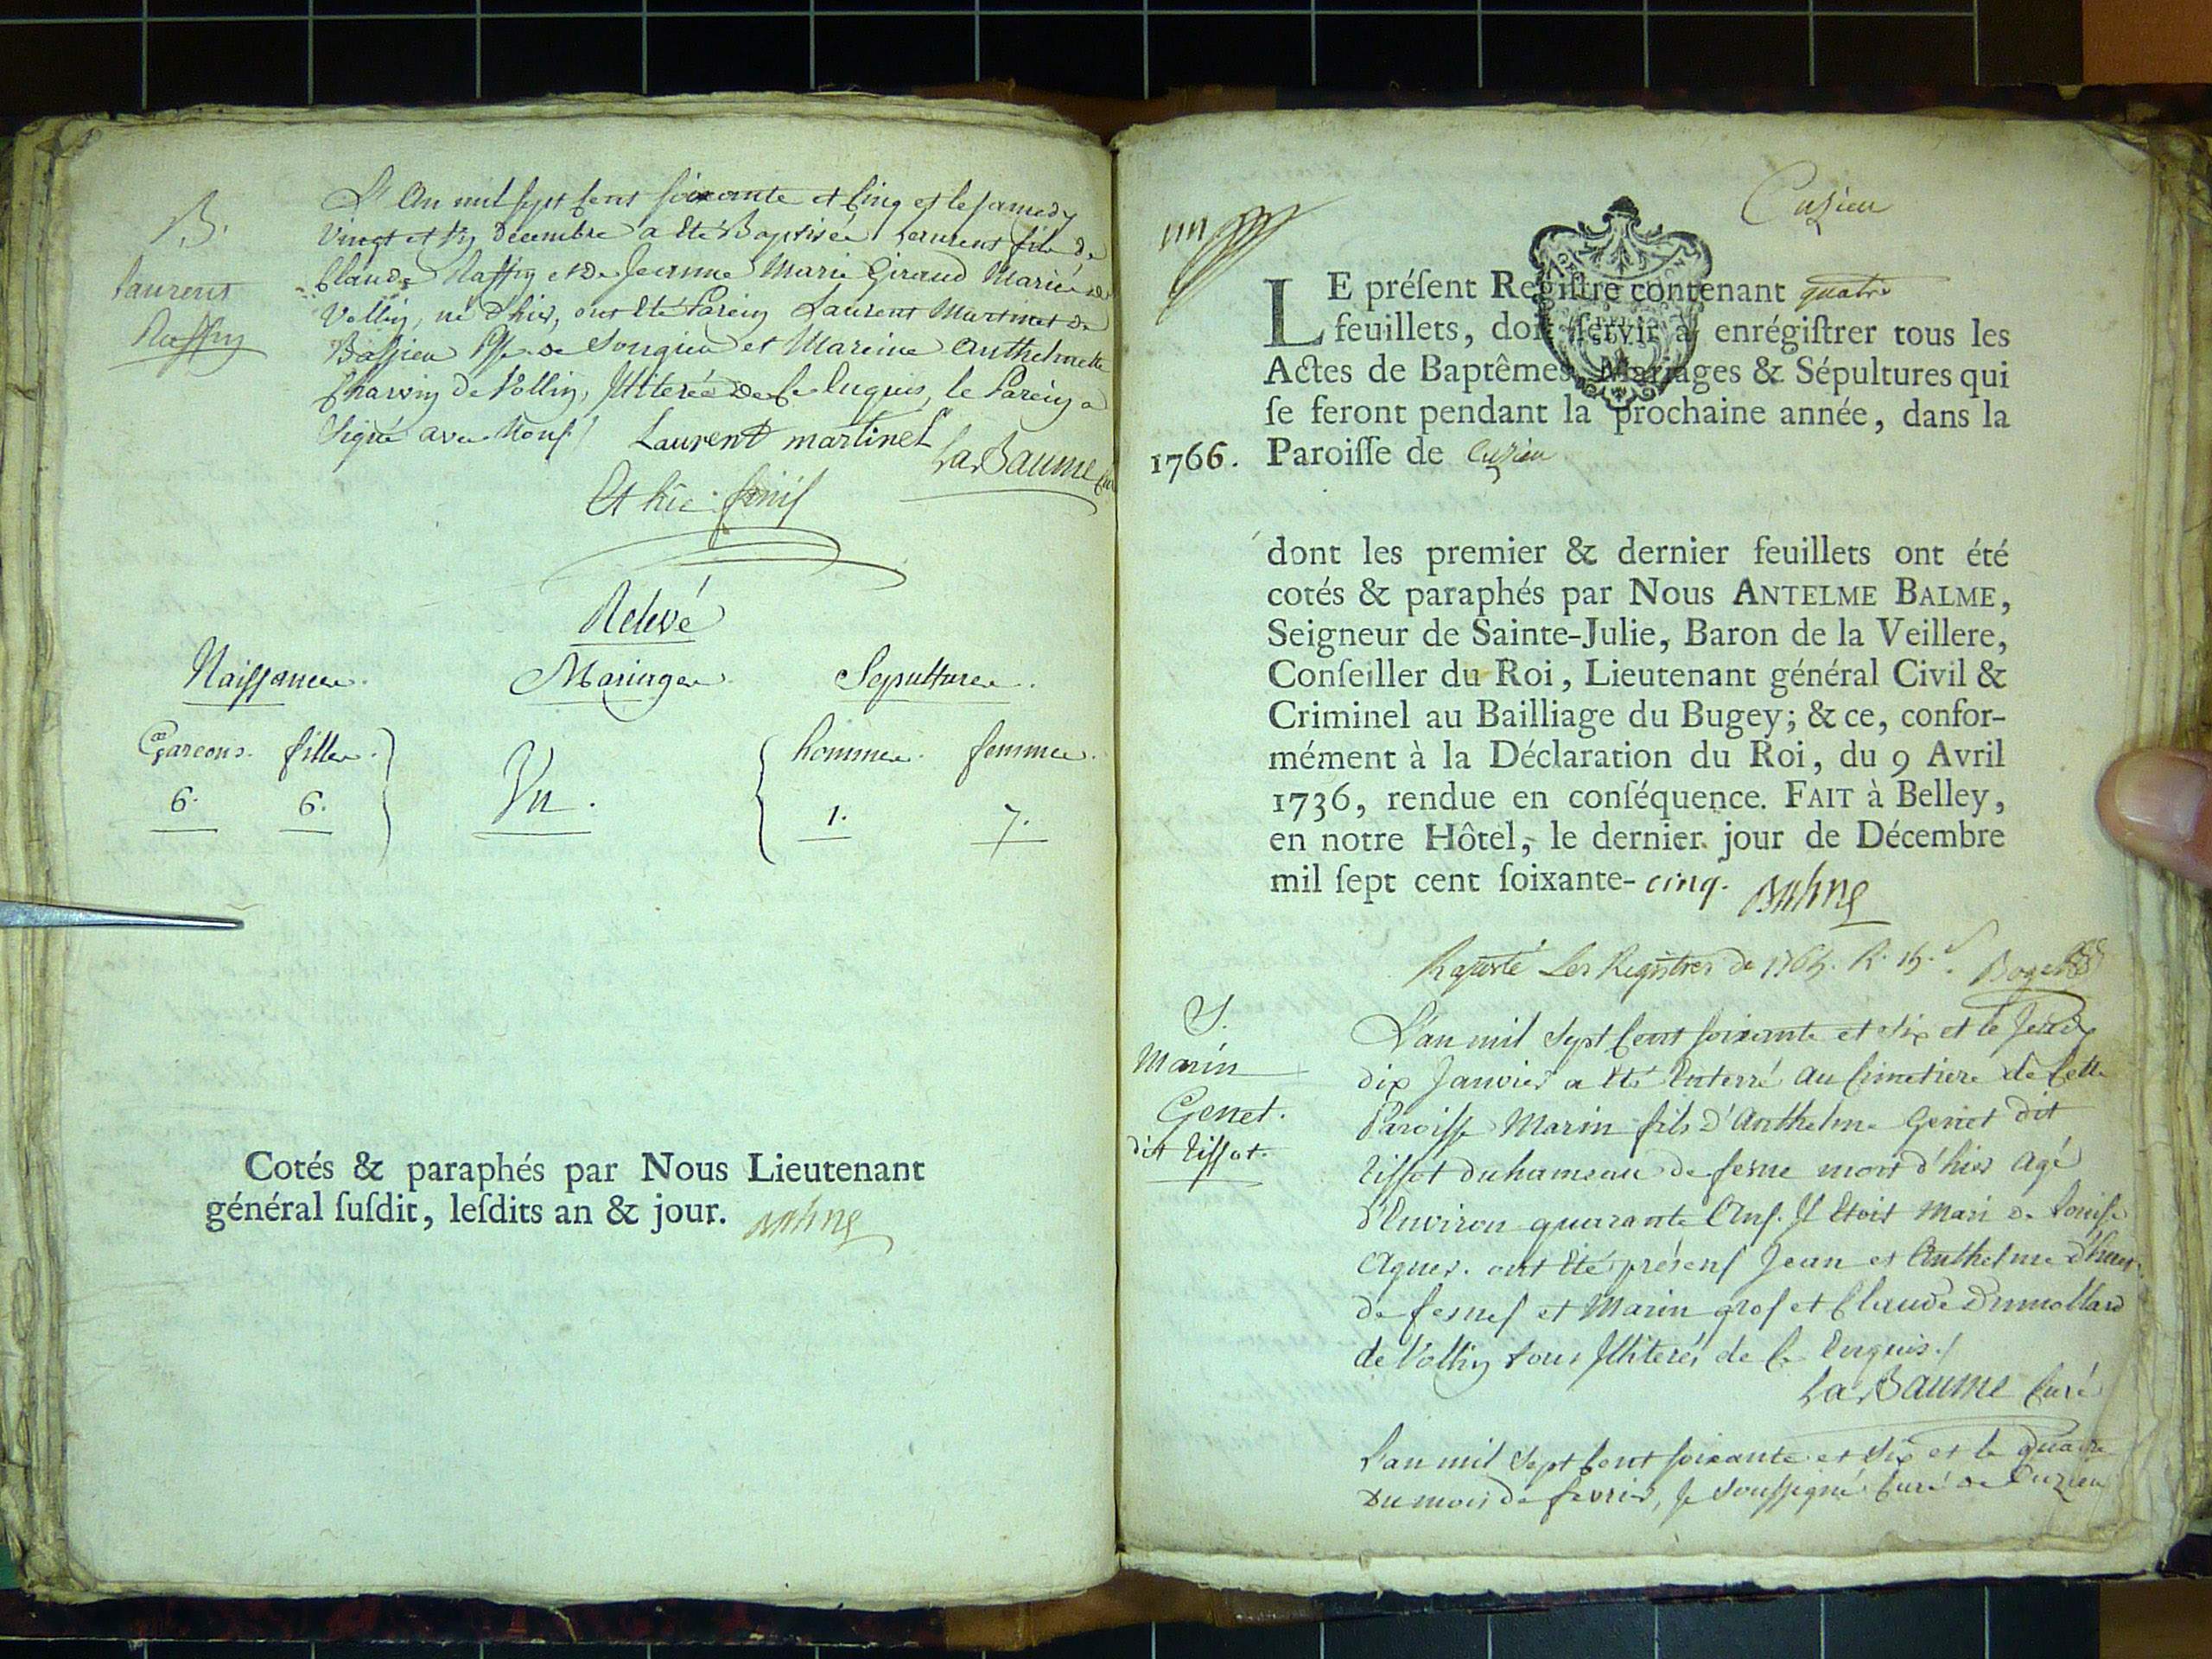 B.
Laurent
Raffin
L'An mil sept Cent soixante et Cinq et le samedy
Vingt et Un Decembre a Eté Baptisée Laurent fils de
Claude Raffin et de Jeanne Marie Giraud Mariés de
Vollin, né d'hier, ont Eté Parein Laurent Martinet de
de Songieu et Mareine Anthelmette
Charvin de Vollin, Illiterée de Ce Enquis, le Parein a
Signé avec Nous /
Laurent martinet
La Baume
Et hic finis
Relevé
Naissances. Mariages. Sepultures.
Garcons. filles. hommes. femmes.
6. 6. Un. 1. 7.
Cotés & paraphés par Nous Lieutenant
général ſuſdit, leſdits an & jour.
Balme
Cuzieu
LE préſent Regiſtre contenant quatre
feuillets, doit ſervir à enrégiſtrer tous les
Actes de Baptêmes, Mariages & Sépultures qui
ſe feront pendant la prochaine année, dans la
1766. Paroiſſe de Cuzieu
dont les premier & dernier feuillets ont été
cotés & paraphés par Nous ANTELME BALME,
Seigneur de Sainte-Julie, Baron de la Veillere,
Conſeiller du Roi, Lieutenant général Civil &
Criminel au Bailliage du Bugey; & ce, confor-
mément à la Déclaration du Roi, du 9 Avril
1736, rendue en conſéquence. FAIT à Belley,
en notre Hôtel, le dernier jour de Décembre
mil ſept cent ſoixante-cinq. Balme
Les Registres de
S.
Marin
Genet.
dit Tissot.
L'an mil Sept Cent soixante et Six et le
dix Janvier a Eté Enterré au Cimetiere de Cette
Paroisse Marin fils d'Anthelme Genet dit
Tissot du hameau de fesne mort d'hier Agé
d'Environ quarante Ans. Il Etoit Mari de Louise
ont Eté présens Jean et Anthelme
de fesnes et Marin gros et Claude Dumollard
de Vollin tous Illiterés de Ce Enquis./
La Baume Curé
L'an mil Sept Cent soixante et Six et le quatre
Du mois de fevrier, Je Soussigné Curé de Cuzieu